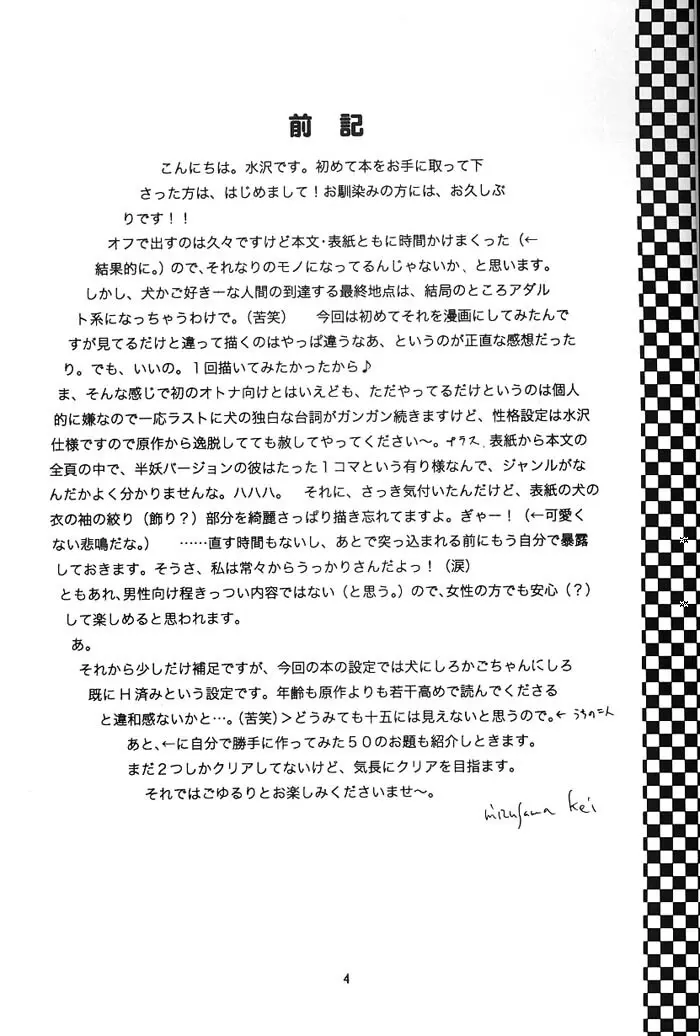 前　記
こんにちは。水沢です。初めて本をお手に取って下
さった方は、はじめまして！お馴染みの方には、お久しぶ
りです！！
オフで出すのは久々ですけど本文・表紙ともに時間かけまくった（←
結果的に。）ので、それなりのモノになってるんじゃないか、と思います。
しかし、犬かご好きーな人間の到達する最終地点は、結局のところアダル
ト系になっちゃうわけで。（苦笑）　今回は初めてそれを漫画にしてみたんで
すが見てるだけと違って描くのはやっぱ違うなあ、というのが正直な感想だった
り。でも、いいの。１回描いてみたかったから♪
ま、そんな感じで初のオトナ向けとはいえども、ただやってるだけというのは個人
的に嫌なので一応ラストに犬の独白な台詞がガンガン続きますけど、性格設定は水沢
仕様ですので原作から逸脱してても赦してやってください〜。プラス、表紙から本文の
全頁の中で、半妖バージョンの彼はたった１コマという有り様なんで、ジャンルがな
んだかよく分かりませんな。ハハハ。　それに、さっき気付いたんだけど、表紙の犬の
衣の袖の絞り（飾り？）部分を綺麗さっぱり描き忘れてますよ。ぎゃー！（←可愛く
ない悲鳴だな。）　……直す時間もないし、あとで突っ込まれる前にもう自分で暴露
しておきます。そうさ、私は常々からうっかりさんだよっ！（涙）
ともあれ、男性向け程きっつい内容ではない（と思う。）ので、女性の方でも安心（？）
して楽しめると思われます。
あ。
それから少しだけ補足ですが、今回の本の設定では犬にしろかごちゃんにしろ
既にＨ済みという設定です。年齢も原作よりも若干高めで読んでくださる
と違和感ないかと…。（苦笑）＞どうみても十五には見えないと思うので。← うちの二人
あと、←に自分で勝手に作ってみた５０のお題も紹介しときます。
まだ２つしかクリアしてないけど、気長にクリアを目指ます。
それではごゆるりとお楽しみくださいませ〜。
mizusawa kei
4